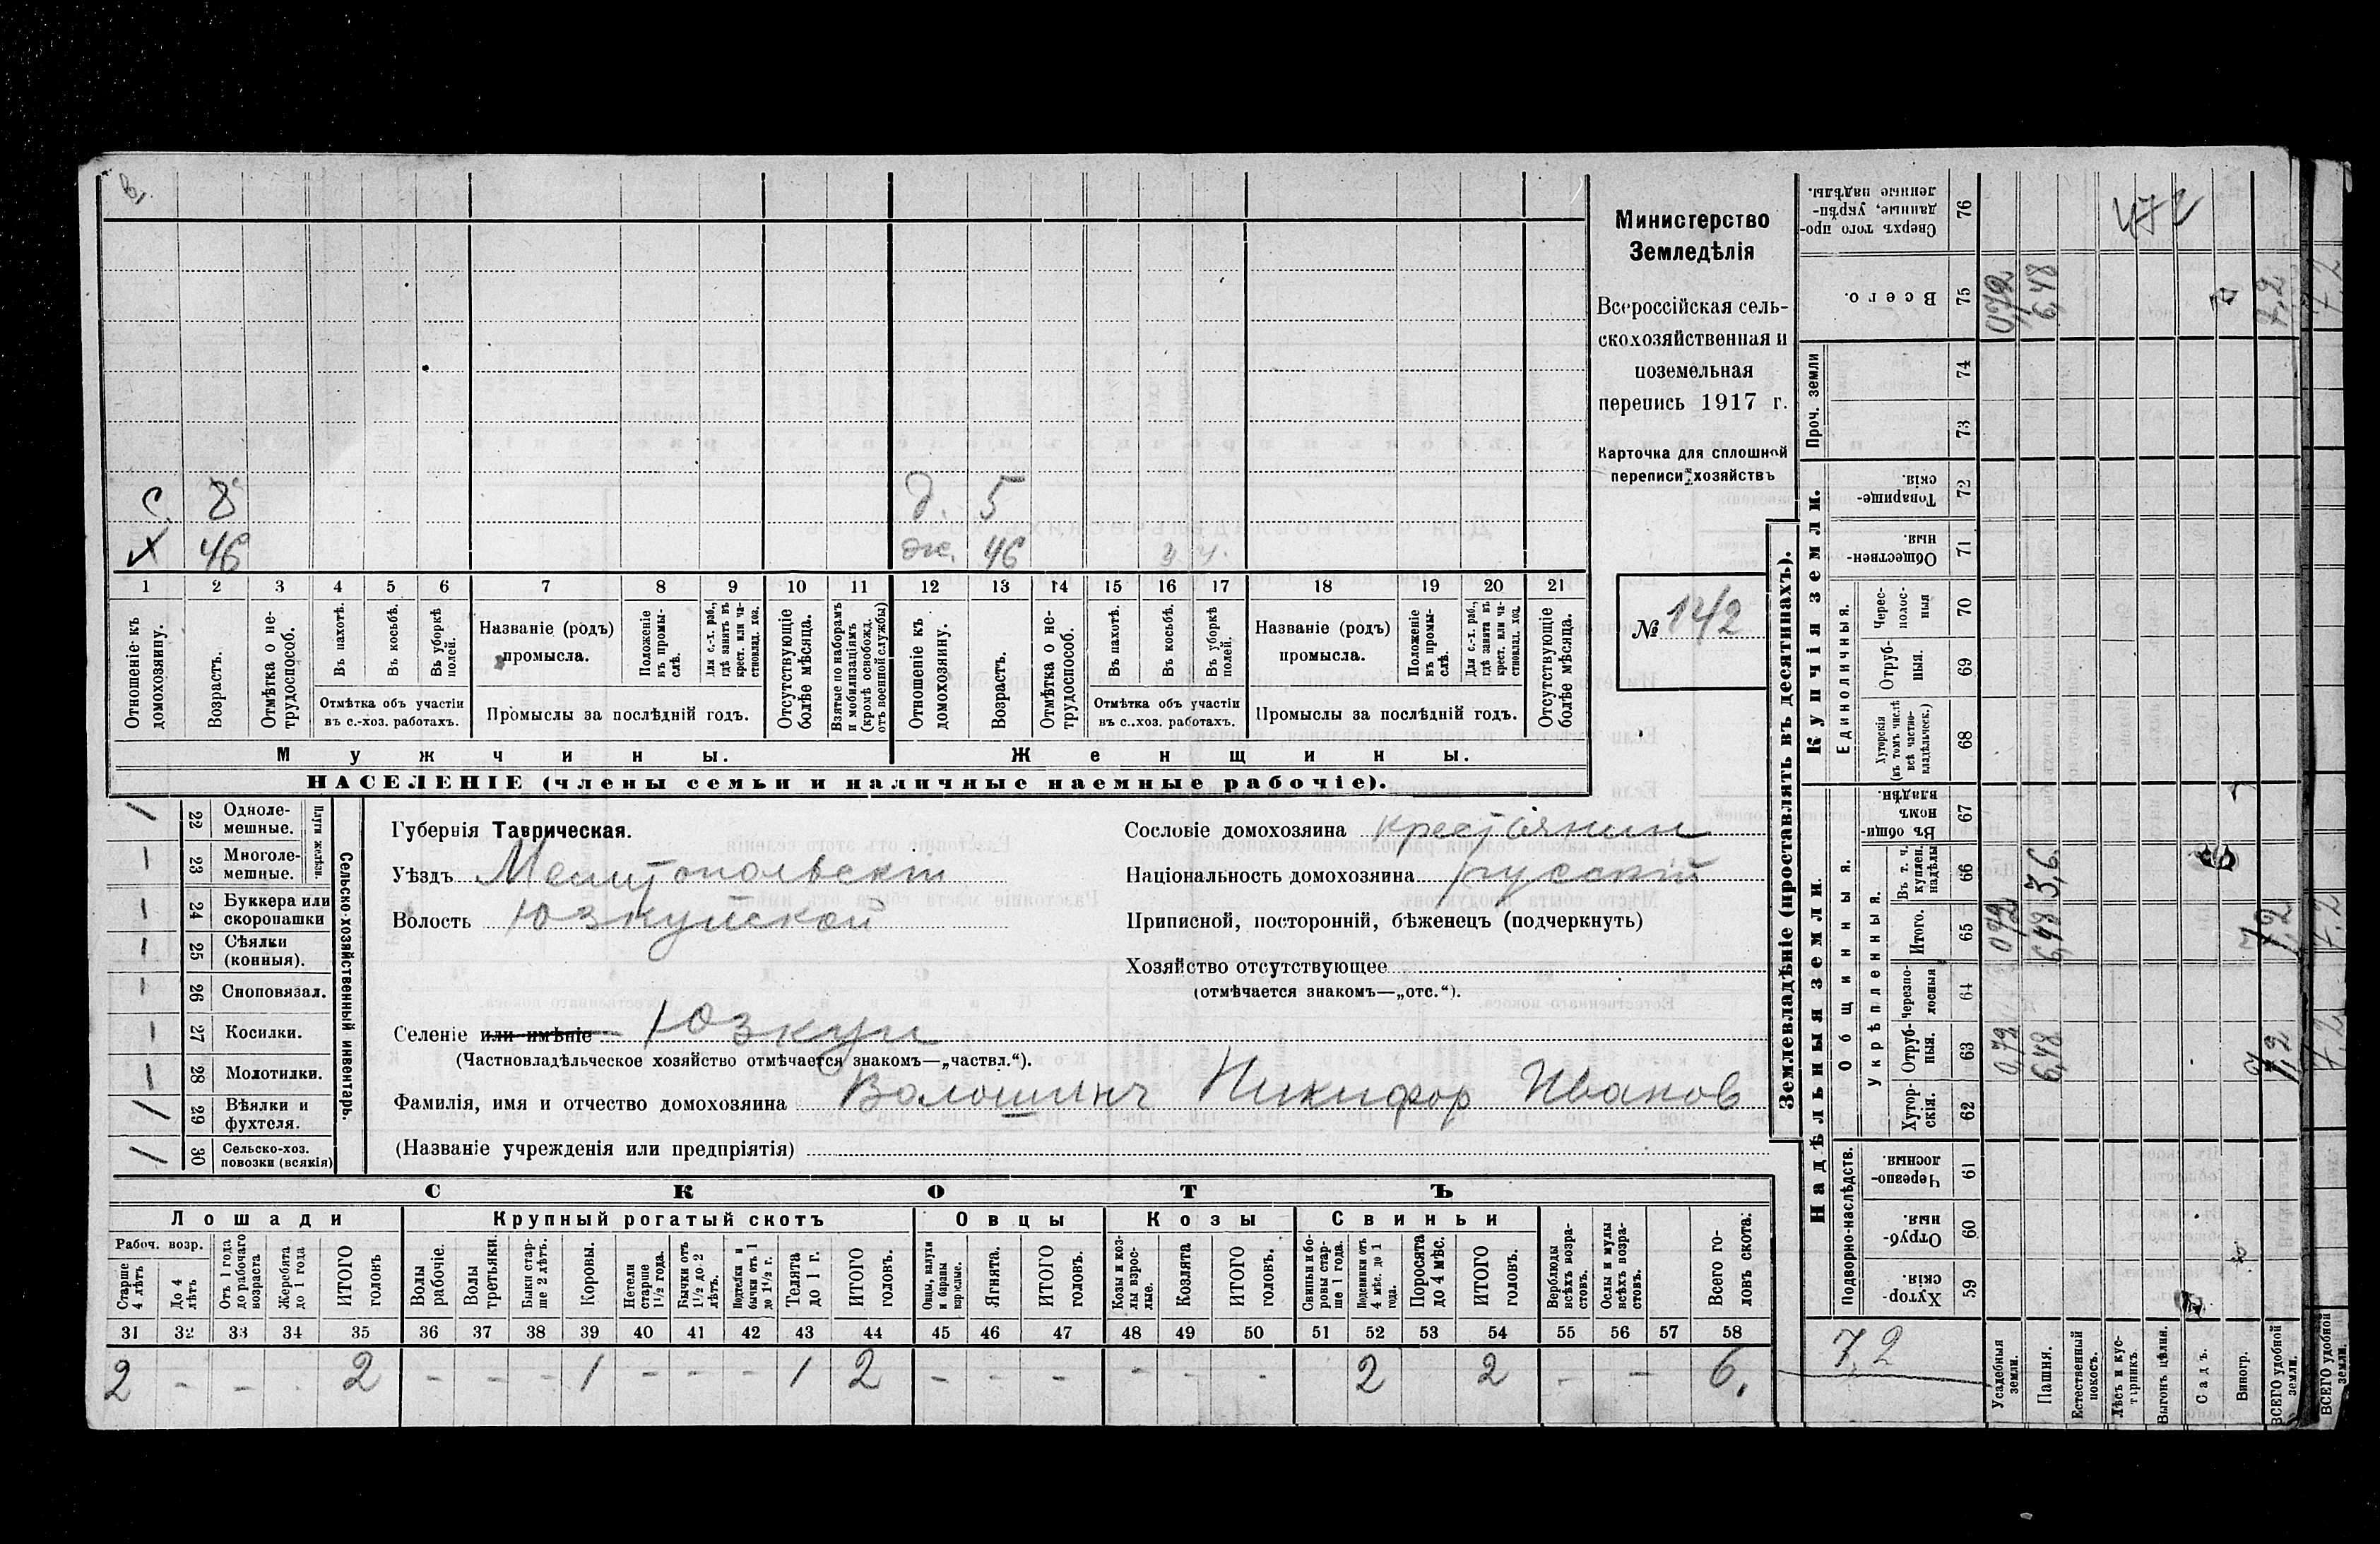 в.
с. 8 д. 5
х 46 ж. 46 з. ч.
1 2 3 4 5 6 7 8 9 10 11 12 13 14 15 16 17 18 19 20 21
Отношеніе къ домохозяину.
Возрастъ.
Отмѣтка о не-
трудоспособ.
Въ пахотѣ.
Въ косьбѣ.
Въ уборкѣ
полей.
Отмѣтка объ участіи
въ с.-хоз. работахъ.
Названіе (родъ)
промысла.
Положеніе
въ промы-
слѣ.
Для с.-х. раб.,
гдѣ занятъ въ
крест. или ча-
стновлад. хоз.
Промыслы за послѣдній годъ.
Отсутствующіе
болѣе мѣсяца.
Взятые по наборамъ
и мобилизаціямъ
(кромѣ освобожд.
отъ военной службы)
Отношеніе къ
домохозяину.
Возрастъ.
Отмѣтка о не-
трудоспособ.
Въ пахотѣ.
Въ косьбѣ.
Въ уборкѣ
полей.
Отмѣтка объ участіи
въ с..хоз. работахъ.
Названіе (родъ)
промысла.
Положеніе
въ промы-
слѣ.
Для с.-х. раб.,
гдѣ занята въ
крест. или ча-
стновлад. хоз.
Промыслы за послѣдній годъ.
Отсутствующіе
болѣе мѣсяца.
Мужчины. Женщины.
НАСЕЛЕНІЕ (члены семьи и наличные наемные рабочіе).
Министерство
Земледѣлія
Всероссійская сель-
скохозяйственная и
поземельная
перепись 1917 г.
Карточка для сплошной
переписи хозяйствъ
№ 142
/ 22 Одноле-
мешные.
/ 23 Многоле-
мешные.
Плуги желѣзн.
/ 24 Буккера или
скоропашки
/ 25 Сѣялки
(конныя).
/ 26 Сноповязал.
/ 27 Косилки.
/ 28 Молотилки.
/ 29 Вѣялки и
фухтеля.
/ 30 Сельско-хоз.
повозки (всякія)
Сельско-хозяйственный инвентарь.
Губернія Таврическая.
Уѣздъ Мелитопольскій
Волость Юзкуйской
Селеніе или имѣніе Юзкуи
(Частновладѣльческое хозяйство отмѣчается знакомъ—„частвл.“).
Фамилія, имя и отчество домохозяина Волошинъ Никифор Иванов
(Названіе учрежденія или предпріятія)
Сословіе домохозяина крестьянин
Національность домохозяина русскій
Приписной, посторонній, бѣженецъ (подчеркнуть)
Хозяйство отсутствующее
(отмѣчается знакомъ—„отс.“).
СКОТЪ
Лошади Крупный рогатый скотъ Овцы Козы Свиньи
Рабоч. возр.
Старше
4 лѣтъ
До 4
лѣтъ
Отъ 1 года
до рабочаго
возраста
Жеребята
до 1 года
ИТОГО
головъ
Волы
рабочіе.
Волы
третьяки.
Быки стар-
ше 2 лѣтъ.
Коровы.
Нетели
старше
1½ года.
Бычки отъ
1½ до 2
лѣтъ.
Подтелки и
бычки отъ 1
до 1½ г.
Телята
до 1 г.
ИТОГО
головъ.
Овцы, валухи
и бараны
взрослые.
Ягнята.
ИТОГО
головъ.
Козы и коз-
лы взрос-
лые.
Козлята
ИТОГО
головъ.
Свиньи и бо-
ровы стар-
ше 1 года.
Подсвинки отъ
4 мѣс. до 1
года.
Поросята
до 4 мѣс.
ИТОГО
головъ.
Верблюды
всѣхъ возра-
стовъ.
Ослы и мулы
всѣхъ возра-
стовъ.
Всего го-
ловъ скота.
31 32 33 34 35 36 37 38 39 40 41 42 43 44 45 46 47 48 49 50 51 52 53 54 55 56 57 58
2 - - . 2 - - - 1 - - - 1 2 - - - - - - 2 2 - - 6.
Землевладѣніе (проставлять въ десятинахъ).
Надѣльныя земли. Купчія земли.
Подворно-наслѣдств.
Общинныя.
Укрѣпленныя.
Единоличныя.
Проч. земли
Хутор-
скія. 59
Отруб-
ныя. 60
Черезпо-
лосныя 61
Хутор-
скія. 62
Отруб-
ныя. 63
Черезпо-
лосныя 64
Итого. 65
Въ т. ч.
куплен.
надѣлы 66
Въ общи-
номъ
владѣн. 67
Хуторскія
(въ томъ числѣ
всѣ частно-
владѣльческ.) 68
Отруб-
ныя. 69
Черес-
полос-
ныя 70
Обществен-
ныя. 71
Товарище-
скія. 72
73
74
Всего. 75
Сверхъ того про-
данные, укрѣп-
ленные надѣлы. 76
7,2
Усадебныя
земли. 0,72 0,72 0,72
Пашня. 6,48 6,48 3,6 6,48
Естественный
покосъ.
Лѣсъ и кус-
тарникъ.
Выгонъ цѣлин.
Садъ.
Виногр.
ВСЕГО удобной
земли. 7,2 7,2 7,2
472
ВСЕГО удобной
земли. 7,2 7,2 7,2